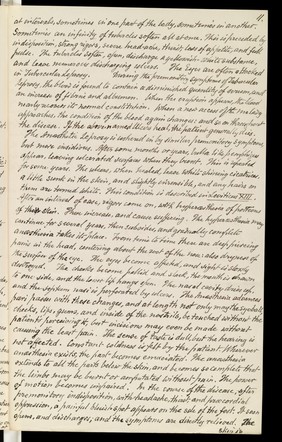 11.
at intervals, sometimes in one part of the body, sometimes in another.
Sometimes an infinity of tubercles often all at once. This is preceded by
indisposition, strong rigors, severe headache, thirst, loss of appetite, and full
pulse. The tubercles soften, open, discharge a yellowish white substance,
and leave numerous discharging ulcers. The eyes are often attacked
in Tubercular Leprosy. During the premonitory symptoms of Tubercular
Leprosy, the blood is found to contain a diminished quantity of serum, and
an increase of fibrine and albumen. When the eruption appears, the blood
nearly recovers its normal constitution. When a new access of the malady
approaches, the condition of the blood again changes; and so on throughout
the disease. If the sores named ulcers heal, the patient generally dies.
The Anaesthetic Leprosy is ushered in by similar premonitory symptoms,
but more insidious. After some months, or years, bullae like pemphigus
appear, leaving ulcerated surfaces when they burst. This is repeated
for some years. The ulcers, when healed, leave white shining cicatrices,
a little sunk in the skin, and slightly moveable, and any hairs on
them are turned white. This condition is described in Leviticus XIII.
After an interval of ease, rigors come on, with hyperaesthesia of portions
of skin. These increase, and cause suffering. The hyperaesthesia may
continue for several years, then subsides, and gradually complete
anaesthesia takes its place. From time to time there are deep piercing
pains in the head, centering about the exit of the nerves; also dryness of
the surface of the eye. The eyes become inflamed, and sight is slowly
destroyed. The cheeks become pallid and slack, the mouth is drawn
to one side, and the lower lip hangs down. The nasal cavity dries up,
and the septum nasi is perforated by ulcers. The anaesthesia advances
pari passu with these changes, and at length not only may the eyeball,
cheeks, lips, gums, and inside of the nostrils, be touched without the
patients perceiving it, but incisions may even be made without
causing the least pain. The sense of taste is dull, but the hearing is
not affected. Constant coldness is felt by the patient. Wherever
anaesthesia exists, the part becomes emaciated. The anaesthesia
extends to all the parts below the skin, and becomes so complete that
the limbs may be burnt or amputated without pain. The power
of motion becomes impaired. In the course of the disease, after
premonitory indisposition, with headache, thirst, and fever and local
depression, a painful bluish spot appears on the sole of the foot. It soon
opens, and discharges; and the symptoms are directly relieved. The